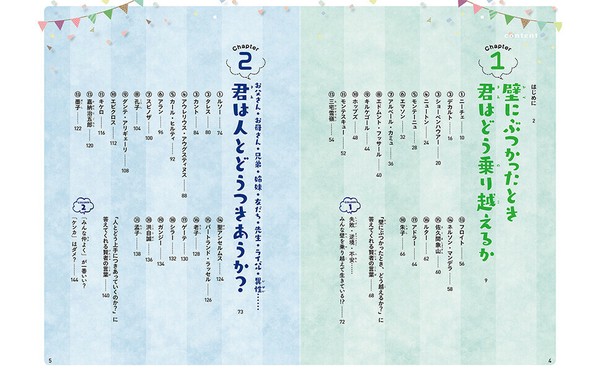 content
はじめに 2
Chapter
1
壁にぶつかったとき
君はどう乗り越えるか
9
① ニーチェ 10
② デカルト 16
③ ショーペンハウアー 20
④ ニュートン 24
⑤ モンテーニュ 28
⑥ エマソン 32
⑦ アルベール・カミュ 36
⑧ エドムント・フッサール 40
⑨ キルケゴール 44
⑩ ホッブズ 48
⑪ モンテスキュー 52
⑫ 三宅雪嶺 54
⑬ フロイト 56
⑭ ネルソン・マンデラ 58
⑮ 佐久間象山 60
⑯ ルター 62
⑰ アドラー 64
⑱ 朱子 66
「壁にぶつかったとき、どう越えるか?」に
答えてくれる賢者の言葉 68
1
失敗・逆境・不安……
みんな壁を乗り越えて生きている!? 72
4
Chapter
2
お父さん・お母さん・兄弟・姉妹・友だち・先生・ライバル・異性……
君は人とどうつきあうか?
73
① ルソー 74
② タレス 80
③ カント 84
④ アウレリウス・アウグスティヌス 88
⑤ カール・ヒルティ 92
⑥ アラン 96
⑦ スピノザ 100
⑧ 孔子 104
⑨ ダンテ・アリギエーリ 108
⑩ エピクロス 112
⑪ キケロ 116
⑫ 嘉納治五郎 120
⑬ 墨子 122
⑭ 聖アンセルムス 124
⑮ バートランド・ラッセル 126
⑯ 老子 128
⑰ ゲーテ 130
⑱ シラー 132
⑲ ガンジー 134
⑳ 浜口儀
㉑ 孟子 138
「人とどう上手につきあっていくのか?」に
答えてくれる賢者の言葉 140
2
「みんな仲よく」が一番いい?
「ケンカ」はダメ? 144
5